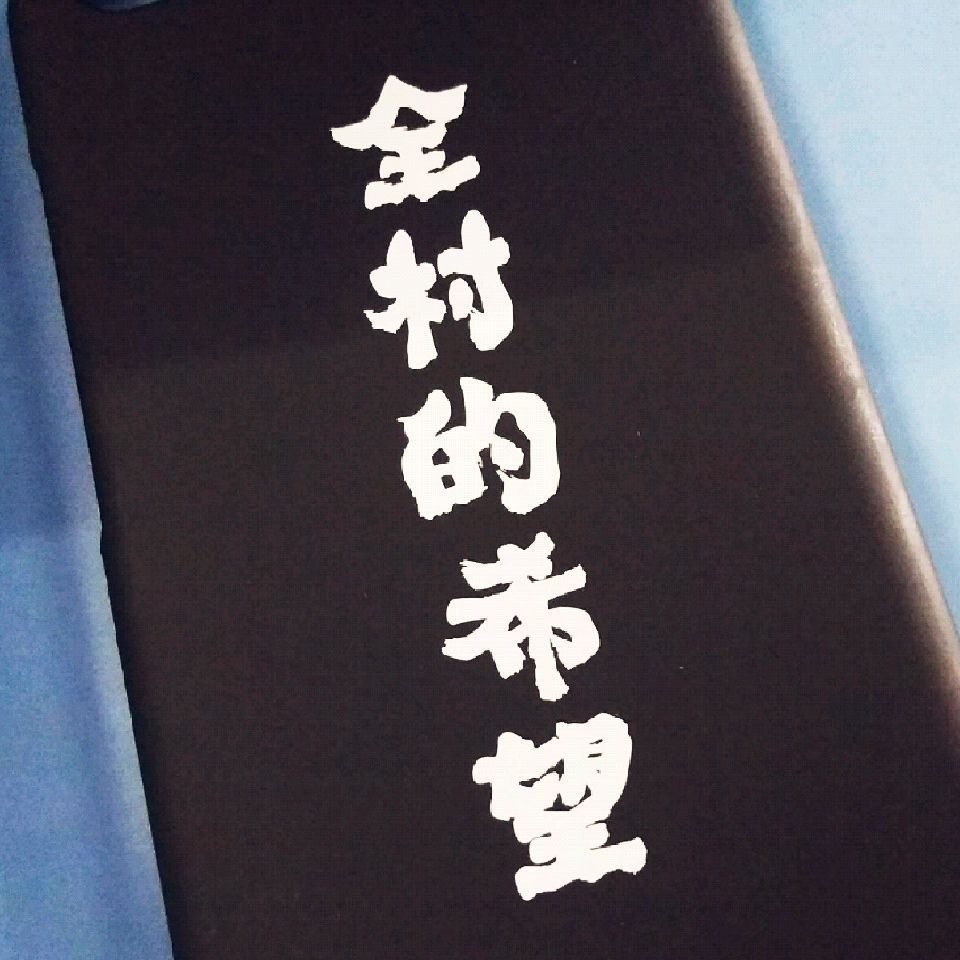 全村的希望